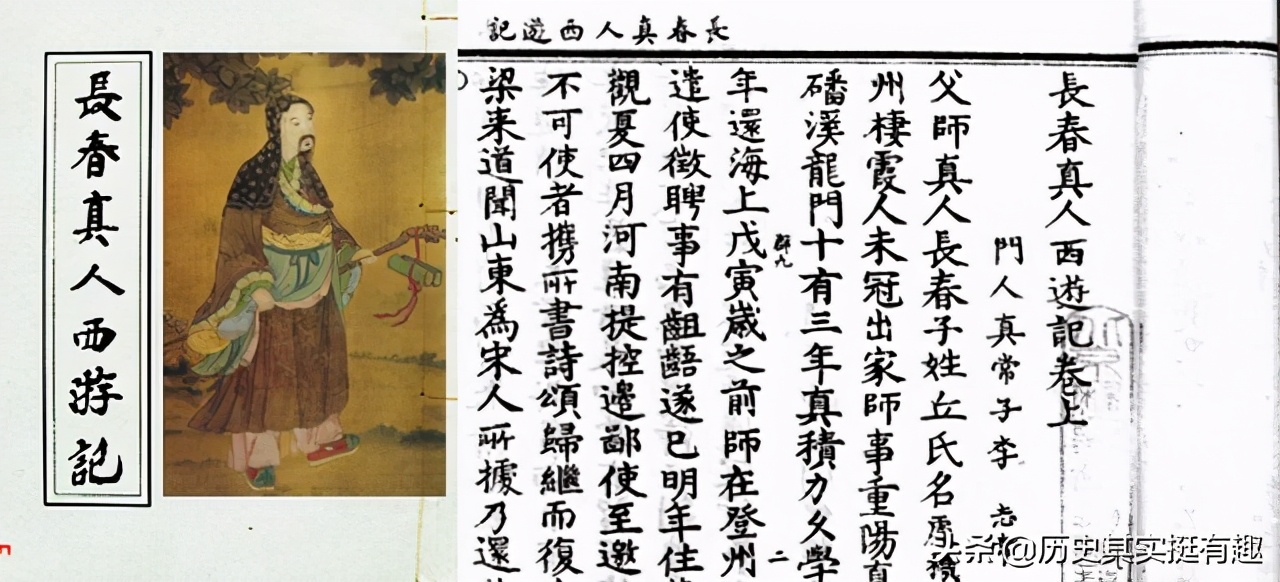 長春真人西游記
長春真人西遊記
長春真人西遊記卷上
門人真常子李 志
父師真人長春子姓丘氏名處機
州棲霞人未冠出家師事重陽真
磻溪龍門十有三年真積力久學
年還海上戊寅歲之前師在登州
二
遣使徵聘事有齟齬遂已明年住
觀夏四月河南提控邊鄙使至邀
不可使者攜所書詩頌歸繼而復
梁来道聞山東為宋人所據乃還
头条 @历史其实挺有趣